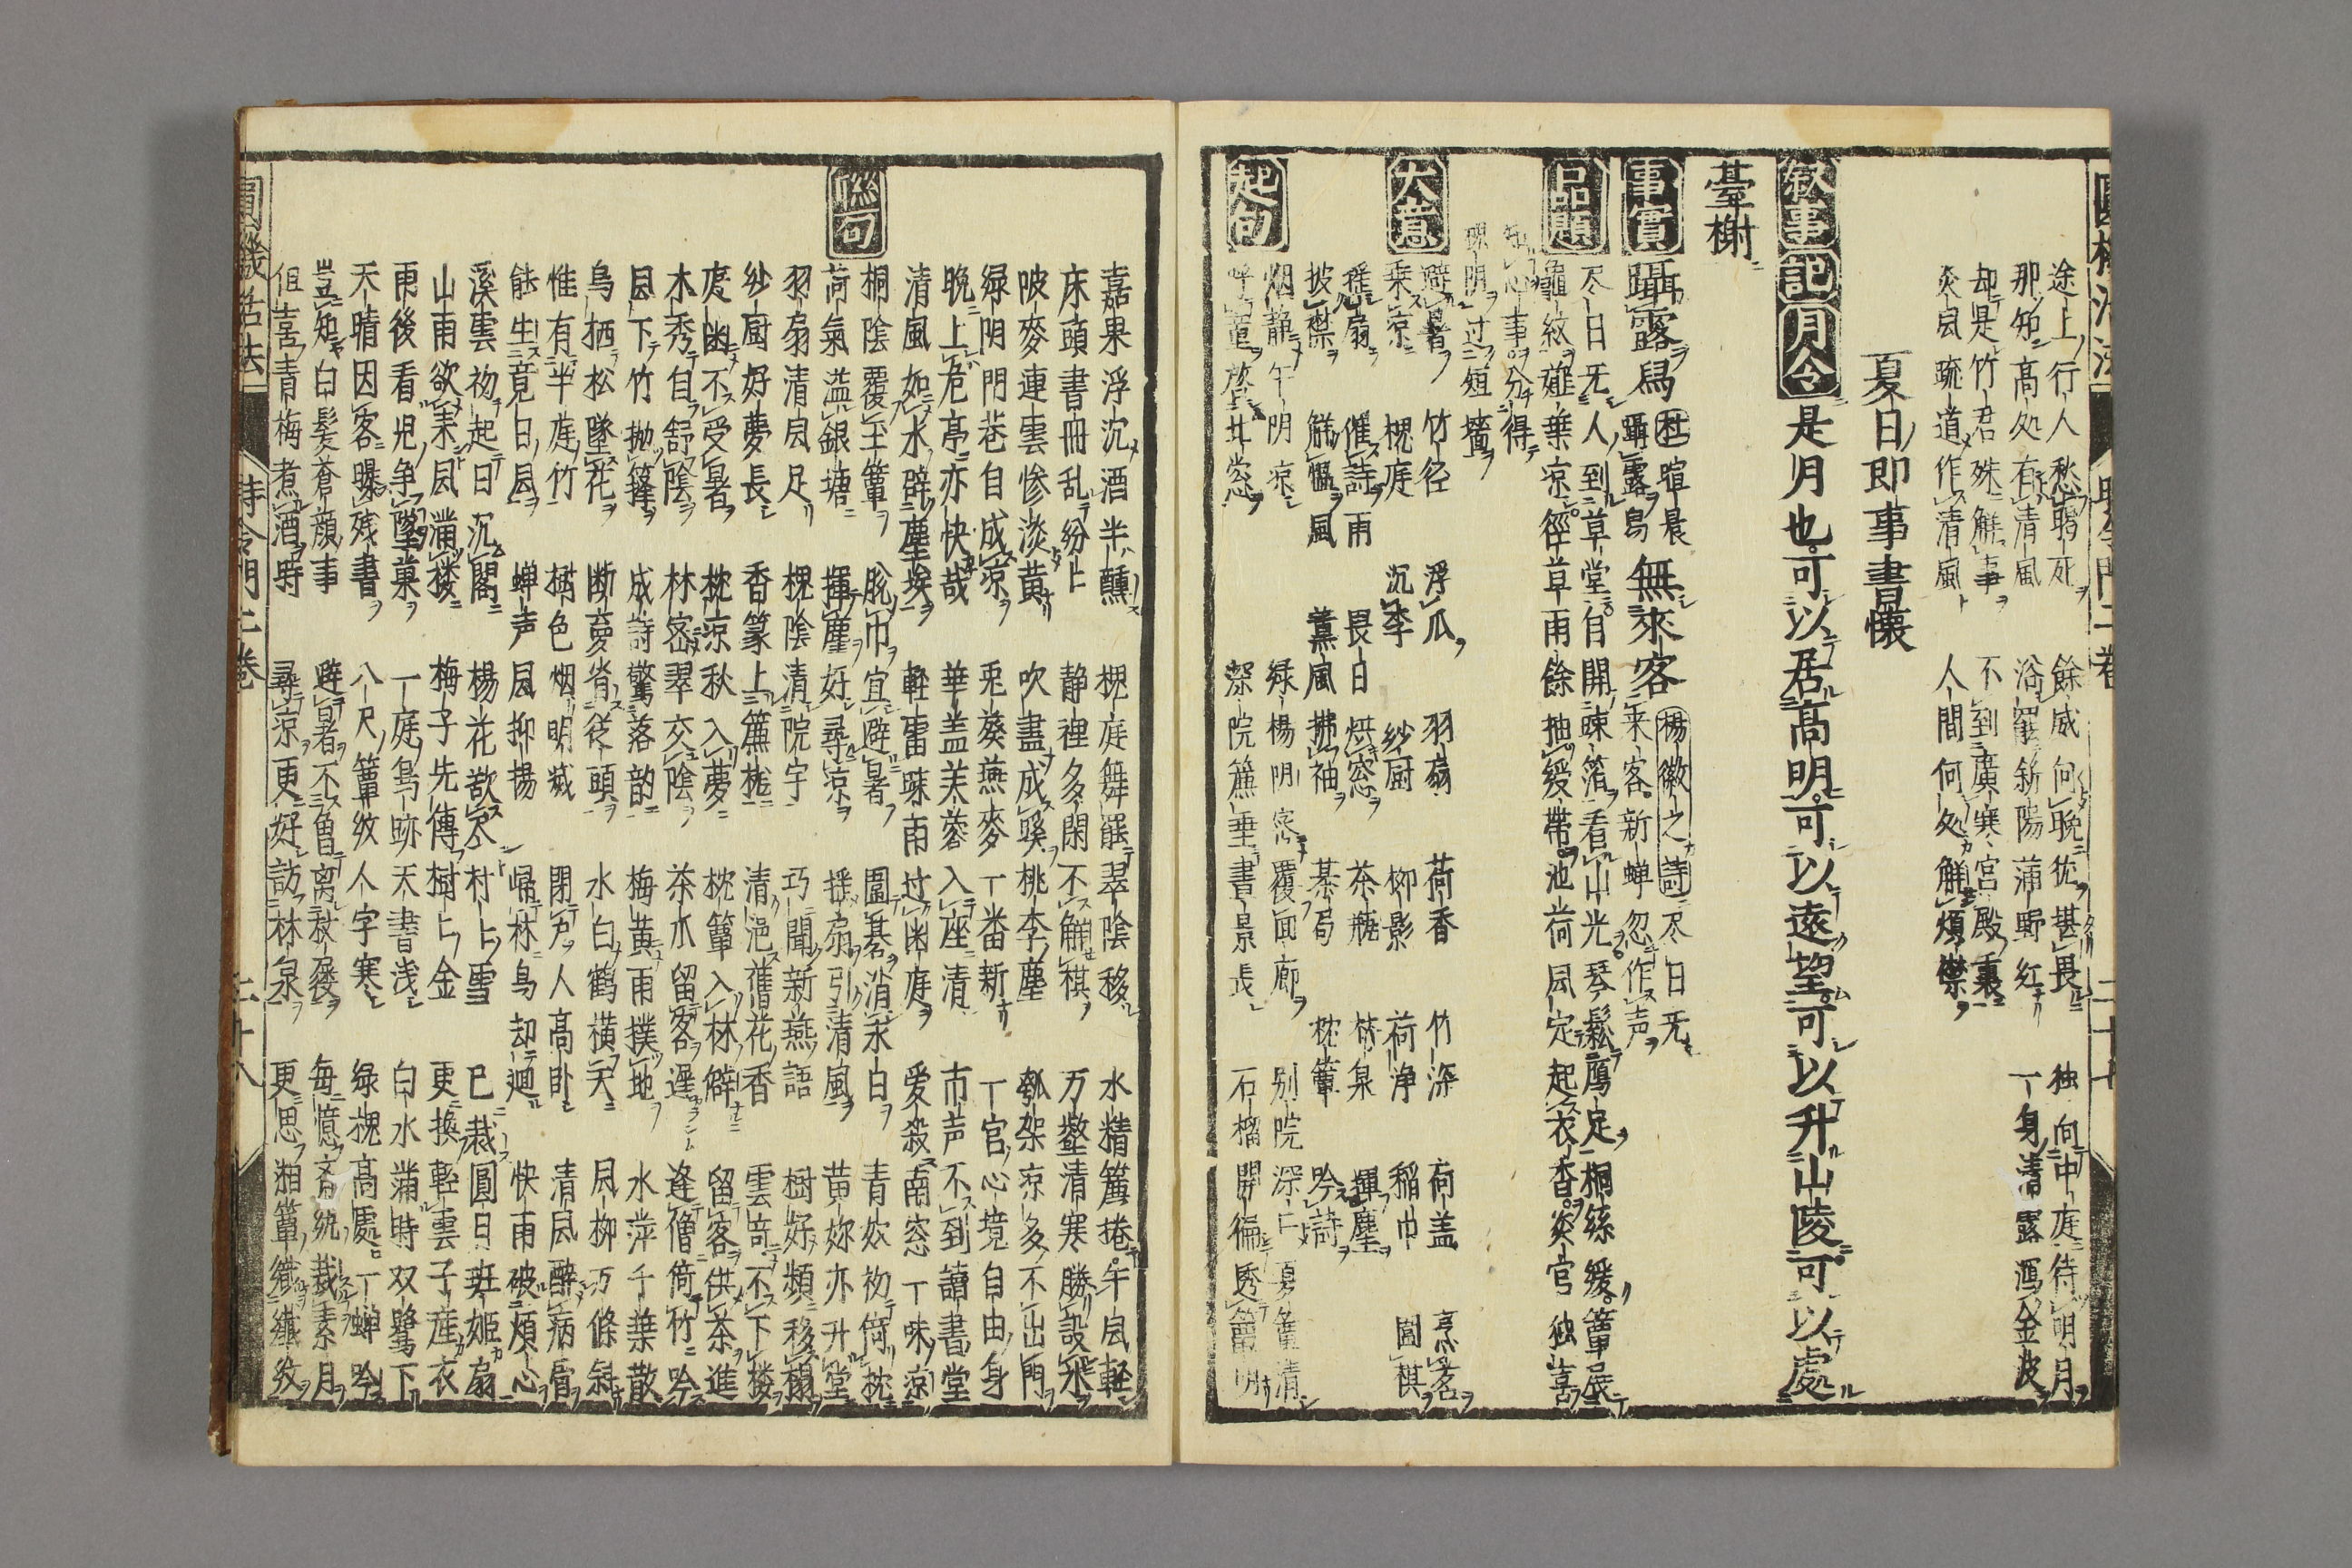 途上行人愁暍死 餘威何晩彼堪畏 独向中庭待明月
那知高処有清風 浴罷新陽蒲野紅 一身清露瀉金波
却是竹君殊解事 不到廣寒宮殿裏
炎风疏道作清風 人間何処解煩襟
夏日即事書懐
叙事 記 月令 是月也可以居高明可以遠望可以升山陵可以處
臺榭
事實 躡露烏 杜 暄晨躡露烏 無來客 楊徽之詩 尽日无来客新蝉忽作声
品題 尽日无人到草堂自開疎箔看山光琴鬆鴈足桐絲緩簟展
龜紋薤葉凉徑草雨餘抽綬帶池荷风定起衣香炎官独喜
無心事分得
陰阴过短墻
避暑 竹径 浮瓜 羽扇 荷香 竹深 荷盖 烹茗
大意 乗凉 槐庭 沉李 纱厨 柳影 荷浄 稲巾 圍棋
揺扇 催詩雨 畏日烘窓 茶甌 林泉 揮塵
披襟 解愠風 薫風拂袖 棊局 枕簟 吟詩
烟静午阴凉 绿楊阴密覆回廊 別院深上夏簟清
起句 呼童放北窓 深院簾垂書景長 石榴開徧透簾明
嘉果浮沉酒半醺 槐庭舞罷翠陰移 水精簾捲午风輕
床頭書冊乱紛上 静裡多閑不解棋 万壑清寒勝設氷
陂麥連雲惨淡黄 吹盡成蹊桃李塵 瓠架凉多不出門
绿阴門巷自成凉 兎葵燕麥一番新 一官心境自由身
晩上危亭亦快哉 華盖芙蓉入座清 市声不到讀書堂
清風如水辟塵埃 軽雷疎雨过幽庭 爱殺南窓一味涼
聮句 桐陰覆宝簟 脱巾宜避暑 圍棊消永日 青奴初荷枕
荷氣溢銀塘 揮塵好尋凉 揺扇引清風 黄妳亦升堂
羽扇清风足 槐陰清院宇 巧聞新燕語 樹好頻移榻
纱厨好夢長 香篆上簾捲 清浥舊花香 雲竒不下楼
庋幽不受暑 枕凉秋入夢 枕簟入林僻 留客供茶進
木秀自舒陰 林密翠交陰 茶瓜留客遲 逢僧倚竹吟
风下竹抛籜 成詩驚落韵 梅黄雨撲地 水萍千葉散
烏栖松墜花 断夢省從頭 水白鹤横天 风柳万條斜
惟有半庭竹 樹色烟明滅 閉戸人高卧 清风醉病肩
能生竟日风 蝉声风抑揚 帰林鳥却廻 快雨破煩心
溪雲初起日沉閣 楊花欲尽村上雪 已裁圓日班姬扇
山雨欲来风满楼 梅子先傳樹上金 更換輕雲子産衣
雨後看児争墜菓 一庭鳥跡天書浅 白水满時双鷺下
天晴因客曝残書 八尺簟紋人字寒 绿槐高處一蝉吟
豈知白髪蒼顔事 避暑不魯离杖屨 毎憶斎紈裁素月
但喜青梅煮酒時 尋凉更好訪林泉 更思湘簟織纎紋
圓機活法 時令門二巻 二十八